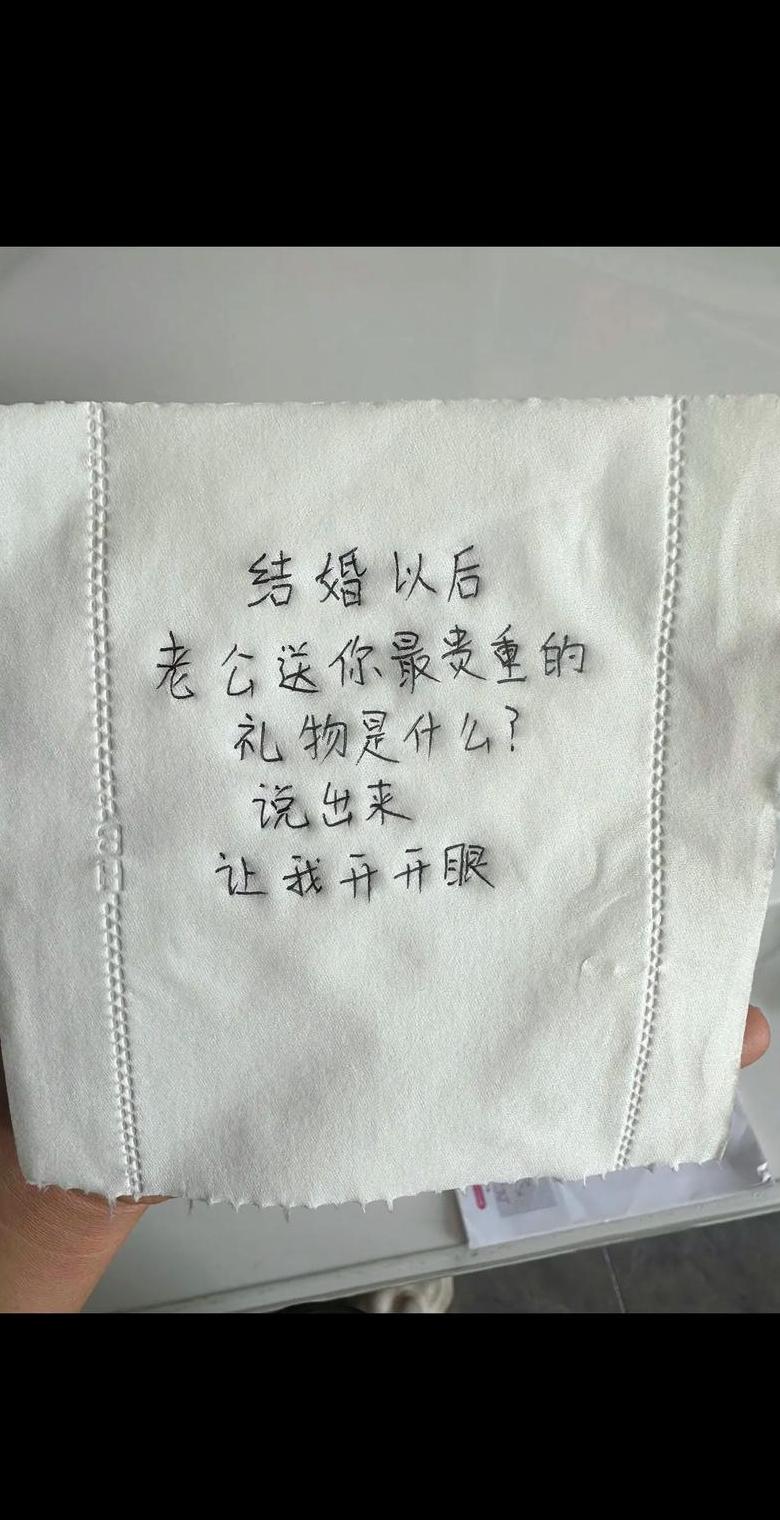 结婚以后
老公送你最贵重的
礼物是什么?
说出来
让我开开眼